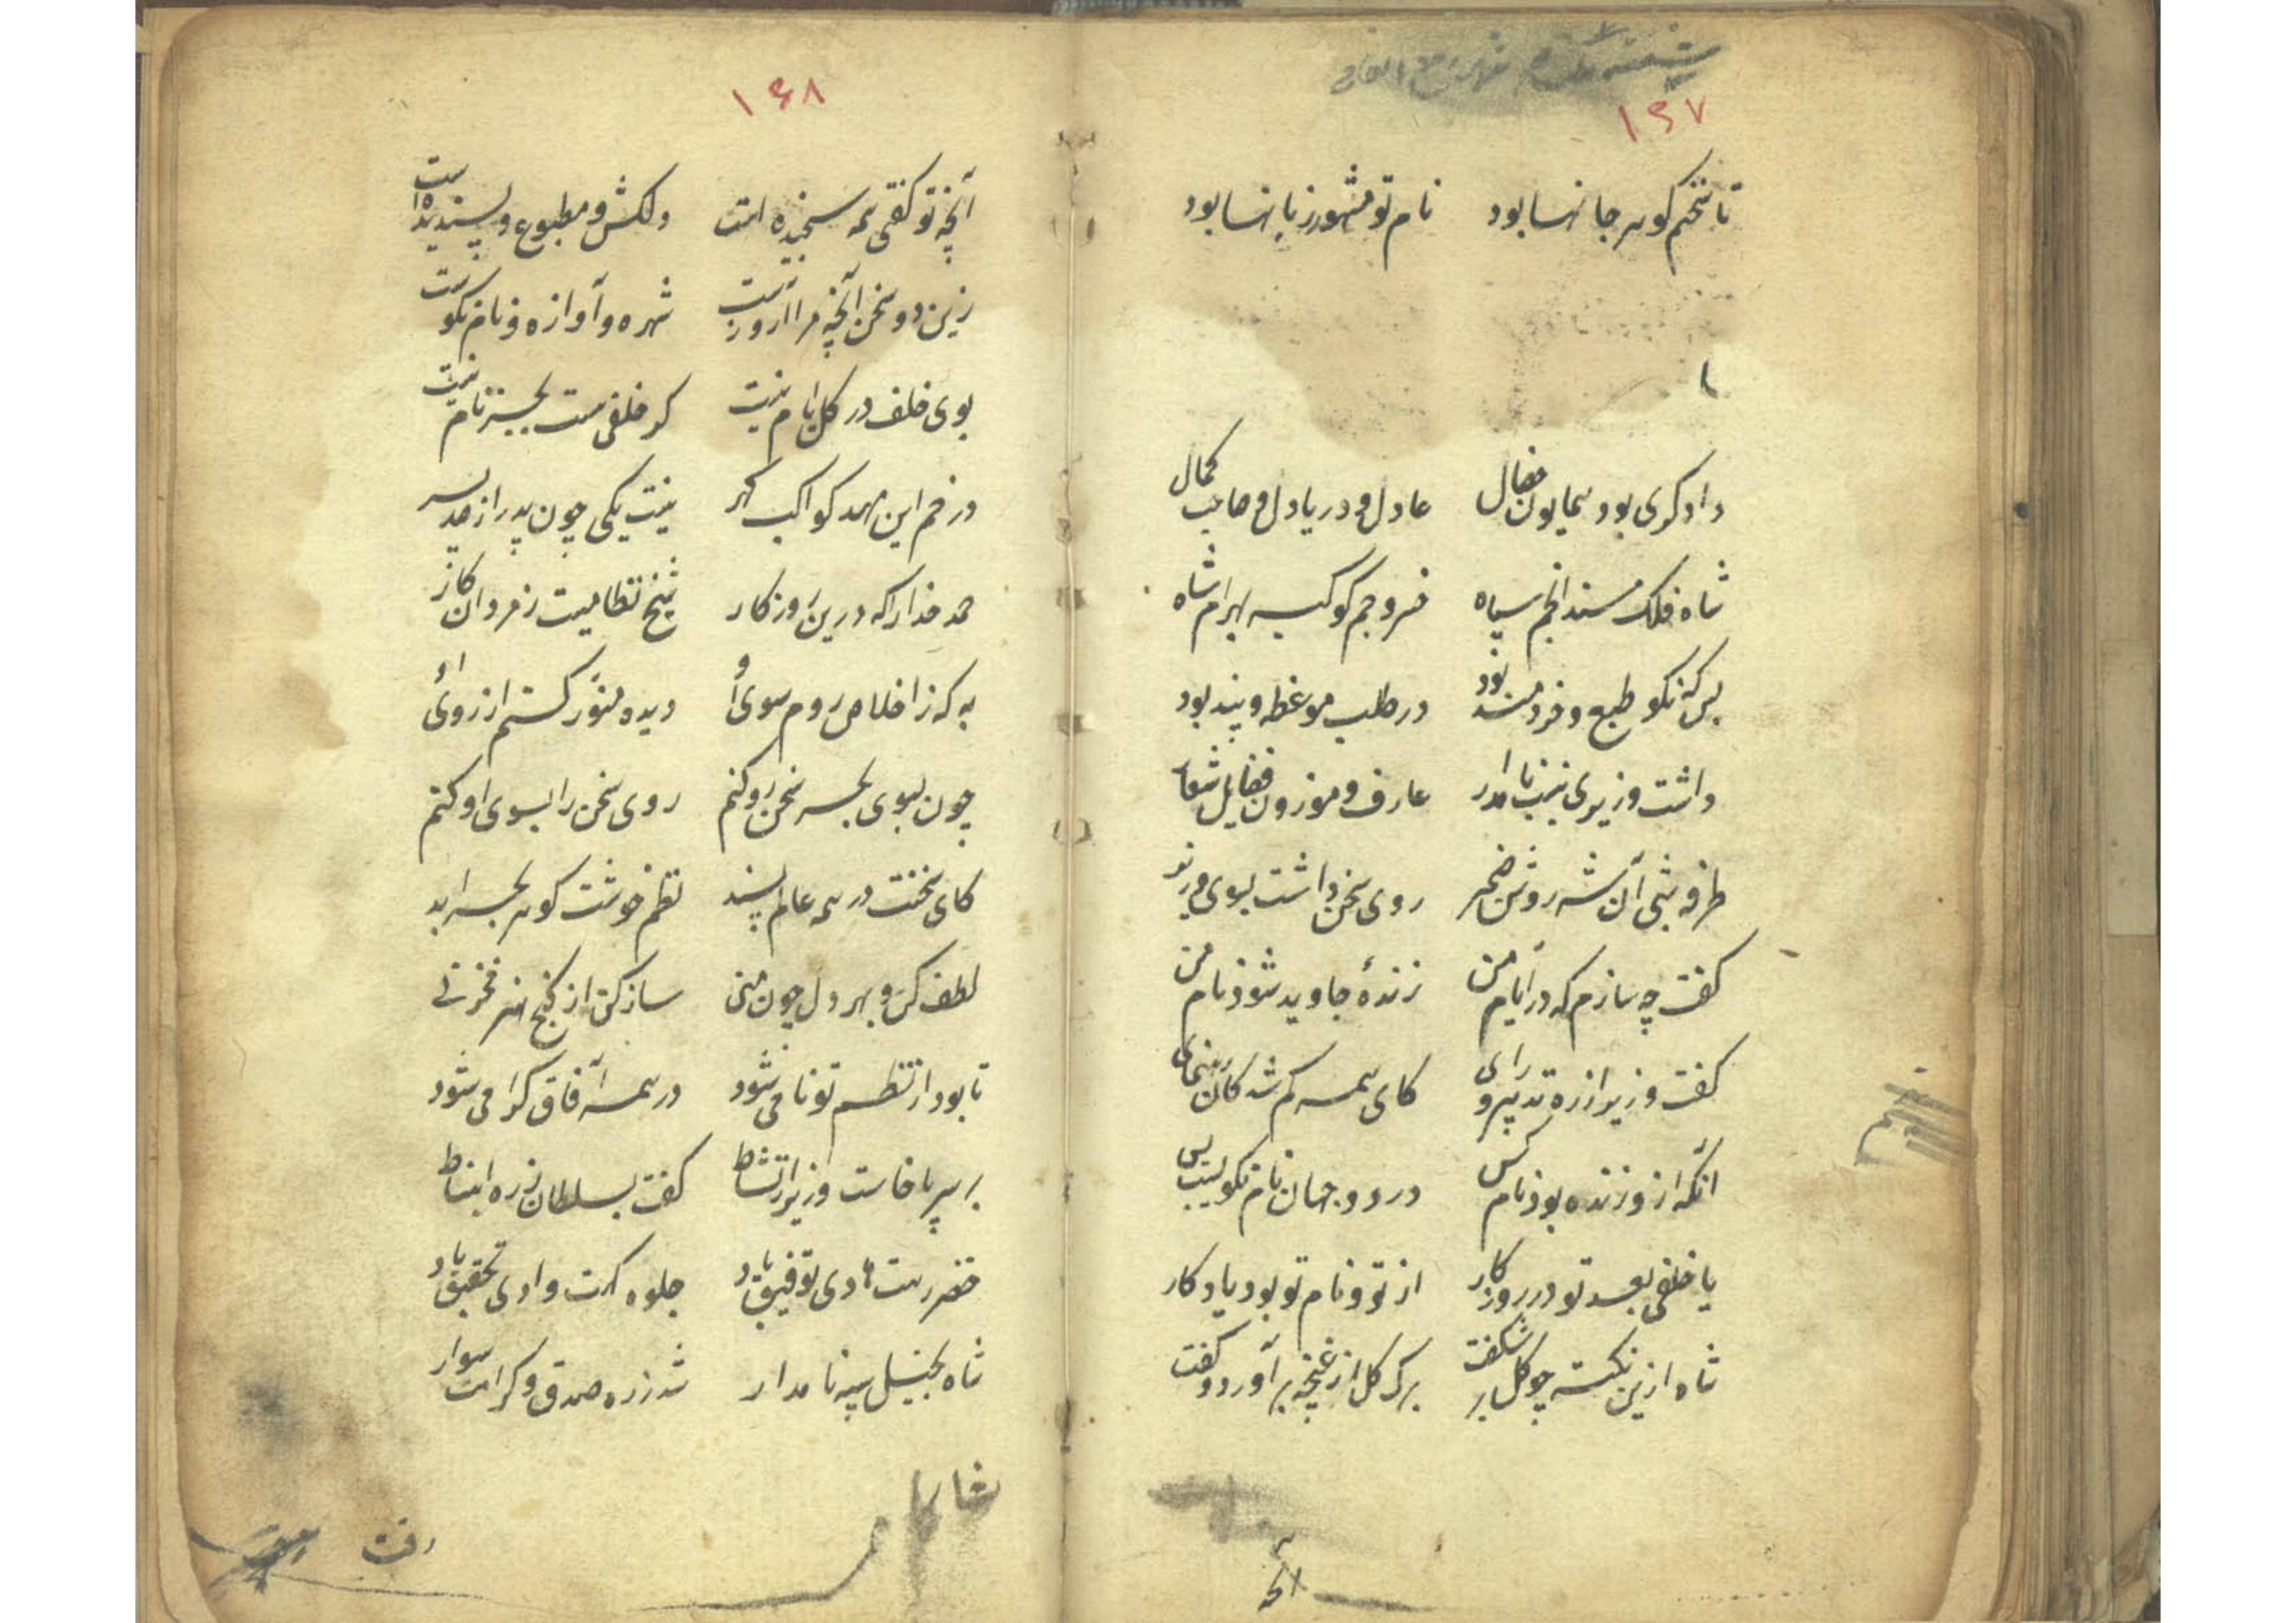 ۱۶۷
تا سخنم گوهر جانها بود نام تو مشهور زبانها بود
دادگری بود همایون خصال عادل و دریادل و صاحب کمال
شاه فلک مسند انجم سپاه خسرو جم کوکبه بهرام شاه
بس که نکو طبع و خردمند بود در طلب موعظه و پند بود
داشت وزیری بنسب نامدار عارف و موزون فضایل شعار
طرفه شبی آن شه روشن ضمیر روی سخن داشت بسوی وزیر
گفت چه سازم که در ایام من زندهٔ جاوید شود نام من
گفت وزیر از ره تدبیر و رای کای همه گم شدگان را رهنمای
آنکه ازو زنده بود نام کس در دو جهان نام نکویست و بس
یا خلفی بعد تو در روزگار از تو و نام تو بود یادگار
شاه ازین نکته چو گل بر شکفت برگ گل از غنچه برآورد و گفت
آنچه
۱۶۸
آنچه تو گفتی همه سنجیده است دلکش و مطبوع و پسندیده است
زین دو سخن آنچه مرا آرزوست شهره و آوازه و نام نکوست
بوی خلف در گل ایام نیست گر خلفی هست بجز نام نیست
در خم این مهد کواکب گهر نیست یکی چون پدر از صد پسر
حمد خدا را که درین روزگار شیخ نظامیست ز مردان کار
به که ز اخلاص روم سوی او دیده منور کنم از روی او
چون بسوی بحر سخن رو کنم روی سخن را بسوی او کنم
کای سخنت در همه عالم پسند نظم خوشت گوهر بحر ابد
لطف کن و بهر دل چون منی ساز کن از گنج هنر مخزنی
تا بود از نظم تو نامی شود در همه آفاق گرامی شود
بر سر پا خاست وزیر از نشاط گفت بسلطان ز ره انبساط
خضر رهت هادی توفیق باد جلوه گهت وادی تحقیق باد
شاه بخیل سپه نامدار شد ز ره صدق و کرامت سوار
رفت